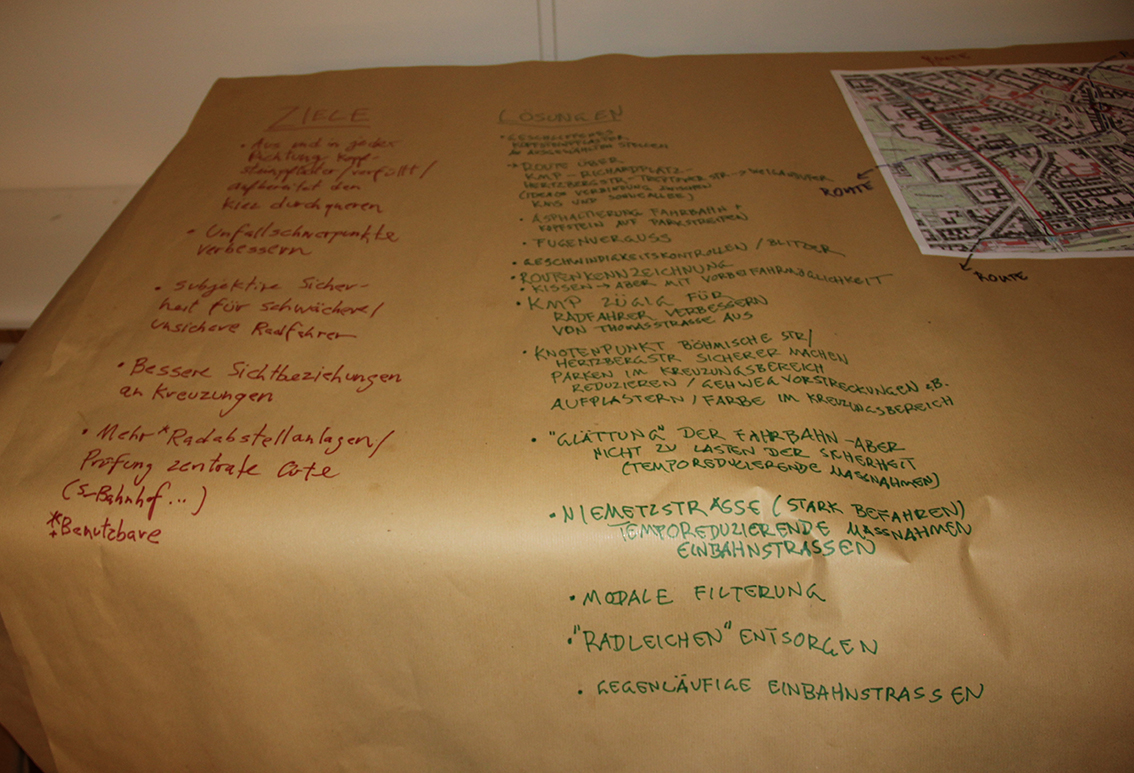 ZIELE
• Aus und in jeder
Richtung Kopf-
steinpflaster/verfüllt/
aufbereitet den
Kiez durchqueren
• Unfallschwerpunkte
verbessern
• subjektive Sicher-
heit für schwächere/
unsichere Radfahrer
• Bessere Sichtbeziehungen
an Kreuzungen
• Mehr *Radabstellanlagen/
Prüfung zentrale Orte
(S-Bahnhof...)
*Benutzbare
LÖSUNGEN
• GESCHLIFFENES
KOPFSTEINPFLASTER
AN AUSGEWÄHLTEN STELLEN
→ ROUTE ÜBER
KMP - RICHARDPLATZ -
HERTZBERGSTR - TREPTOWER STR →
(IDEALE VERBINDUNG ZWISCHEN
KMS UND SONNENALLEE)
• ASPHALTIERUNG FAHRBAHN +
KOPFSTEIN AUF PARKSTREIFEN
• FUGENVERGUSS
• GESCHWINDIGKEITSKONTROLLEN / BLITZER
• ROUTENKENNZEICHNUNG
• KISSEN → ABER MIT VORBEIFAHRMÖGLICHKEIT
• KMP ZÜGIG FÜR
RADFAHRER VERBESSERN
VON THOMASSTRASSE AUS
• KNOTENPUNKT BÖHMISCHE STR/
HERTZBERGSTR SICHERER MACHEN
PARKEN IM KREUZUNGSBEREICH
REDUZIEREN / GEHWEGVORSTRECKUNGEN z.B.
AUFPLASTERN / FARBE IM KREUZUNGSBEREICH
• "GLÄTTUNG" DER FAHRBAHN - ABER
NICHT ZU LASTEN DER SICHERHEIT
(TEMPOREDUZIERENDE MASSNAHMEN)
• NIEMETZSTRASSE (STARK BEFAHREN)
TEMPOREDUZIERENDE MASSNAHMEN
EINBAHNSTRASSEN
• MODALE FILTERUNG
• "RADLEICHEN" ENTSORGEN
• GEGENLÄUFIGE EINBAHNSTRASSEN
ROUTE
ROUTE
ROUTE